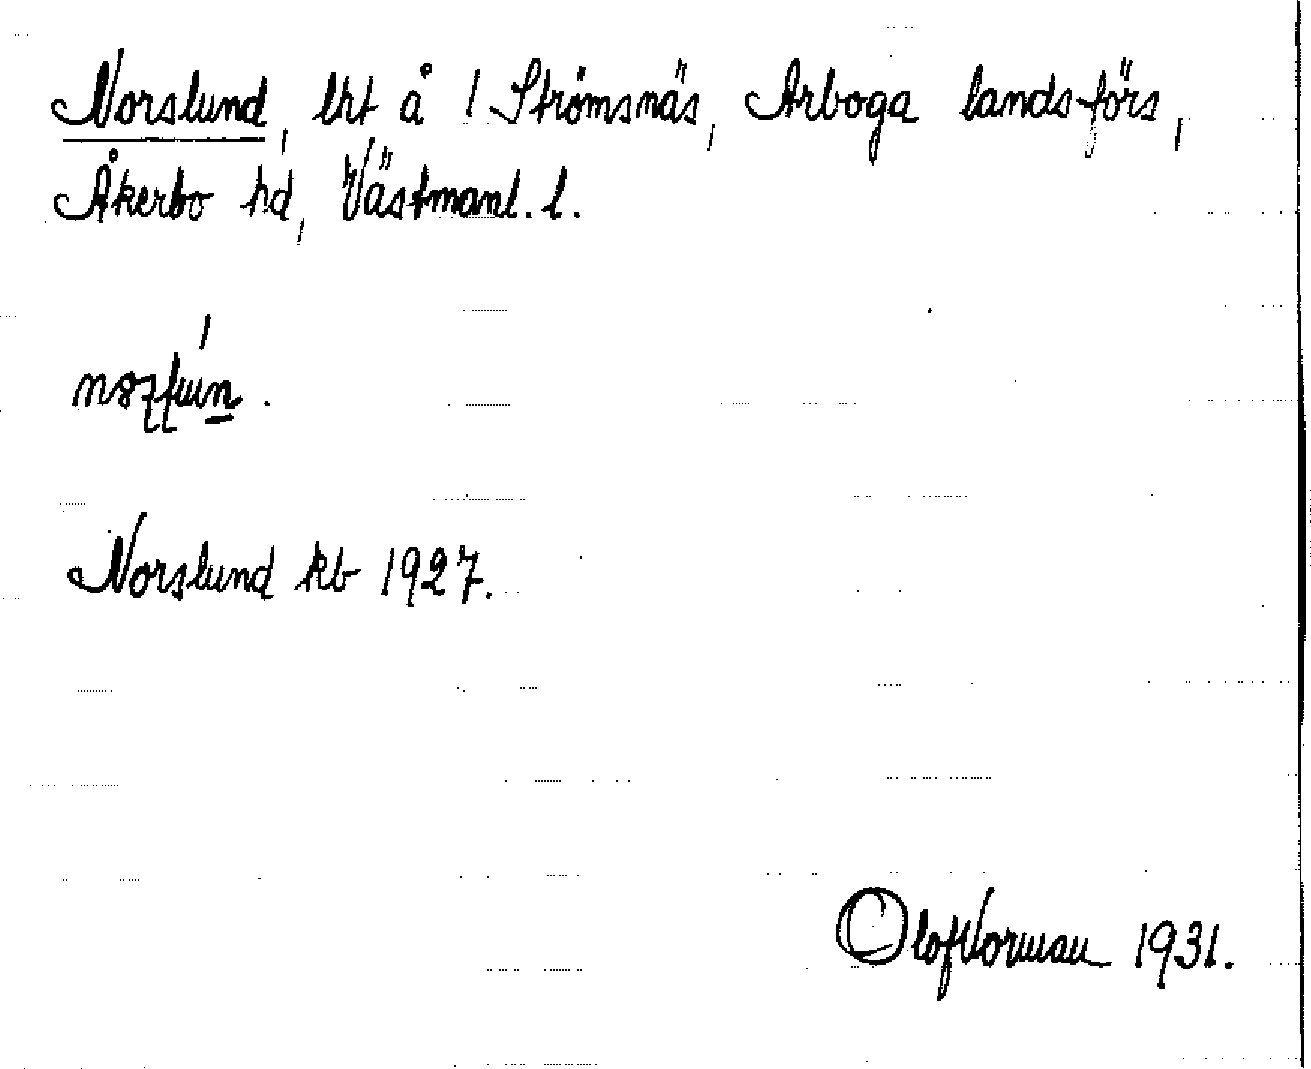 Norslund, lht å 1 Strömsnäs, Arboga landsförs,
Åkerbo hd, Västmanl. l.
Norslund kb 1927.
Olof Norman 1931.